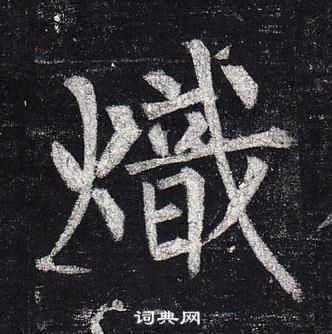 熾
词典网